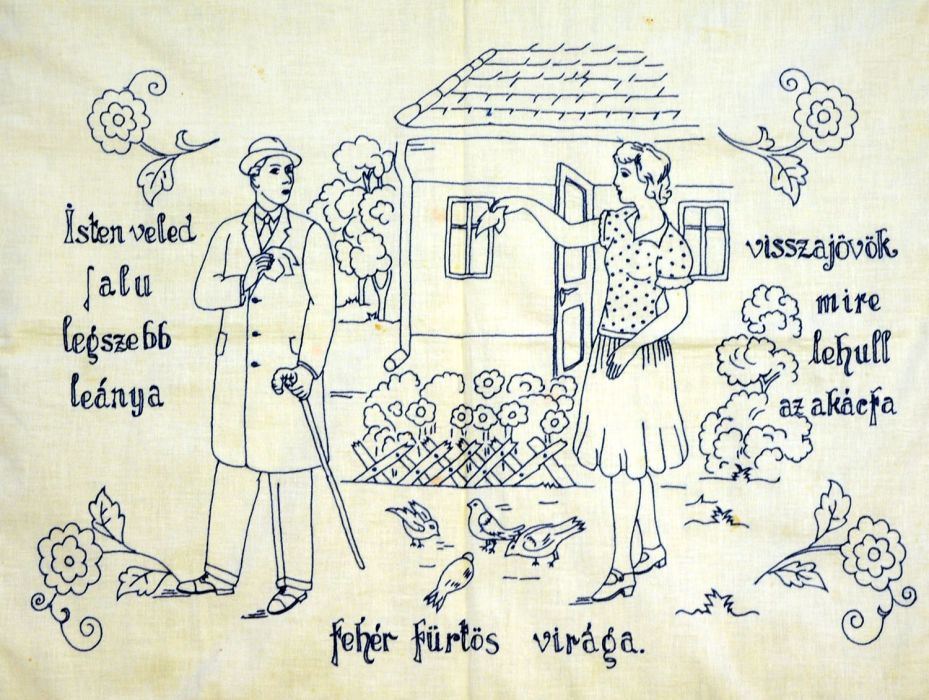 Isten veled
falu
legszebb
leánya
visszajövök
mire
lehull
az akácfa
fehér fürtös virága.